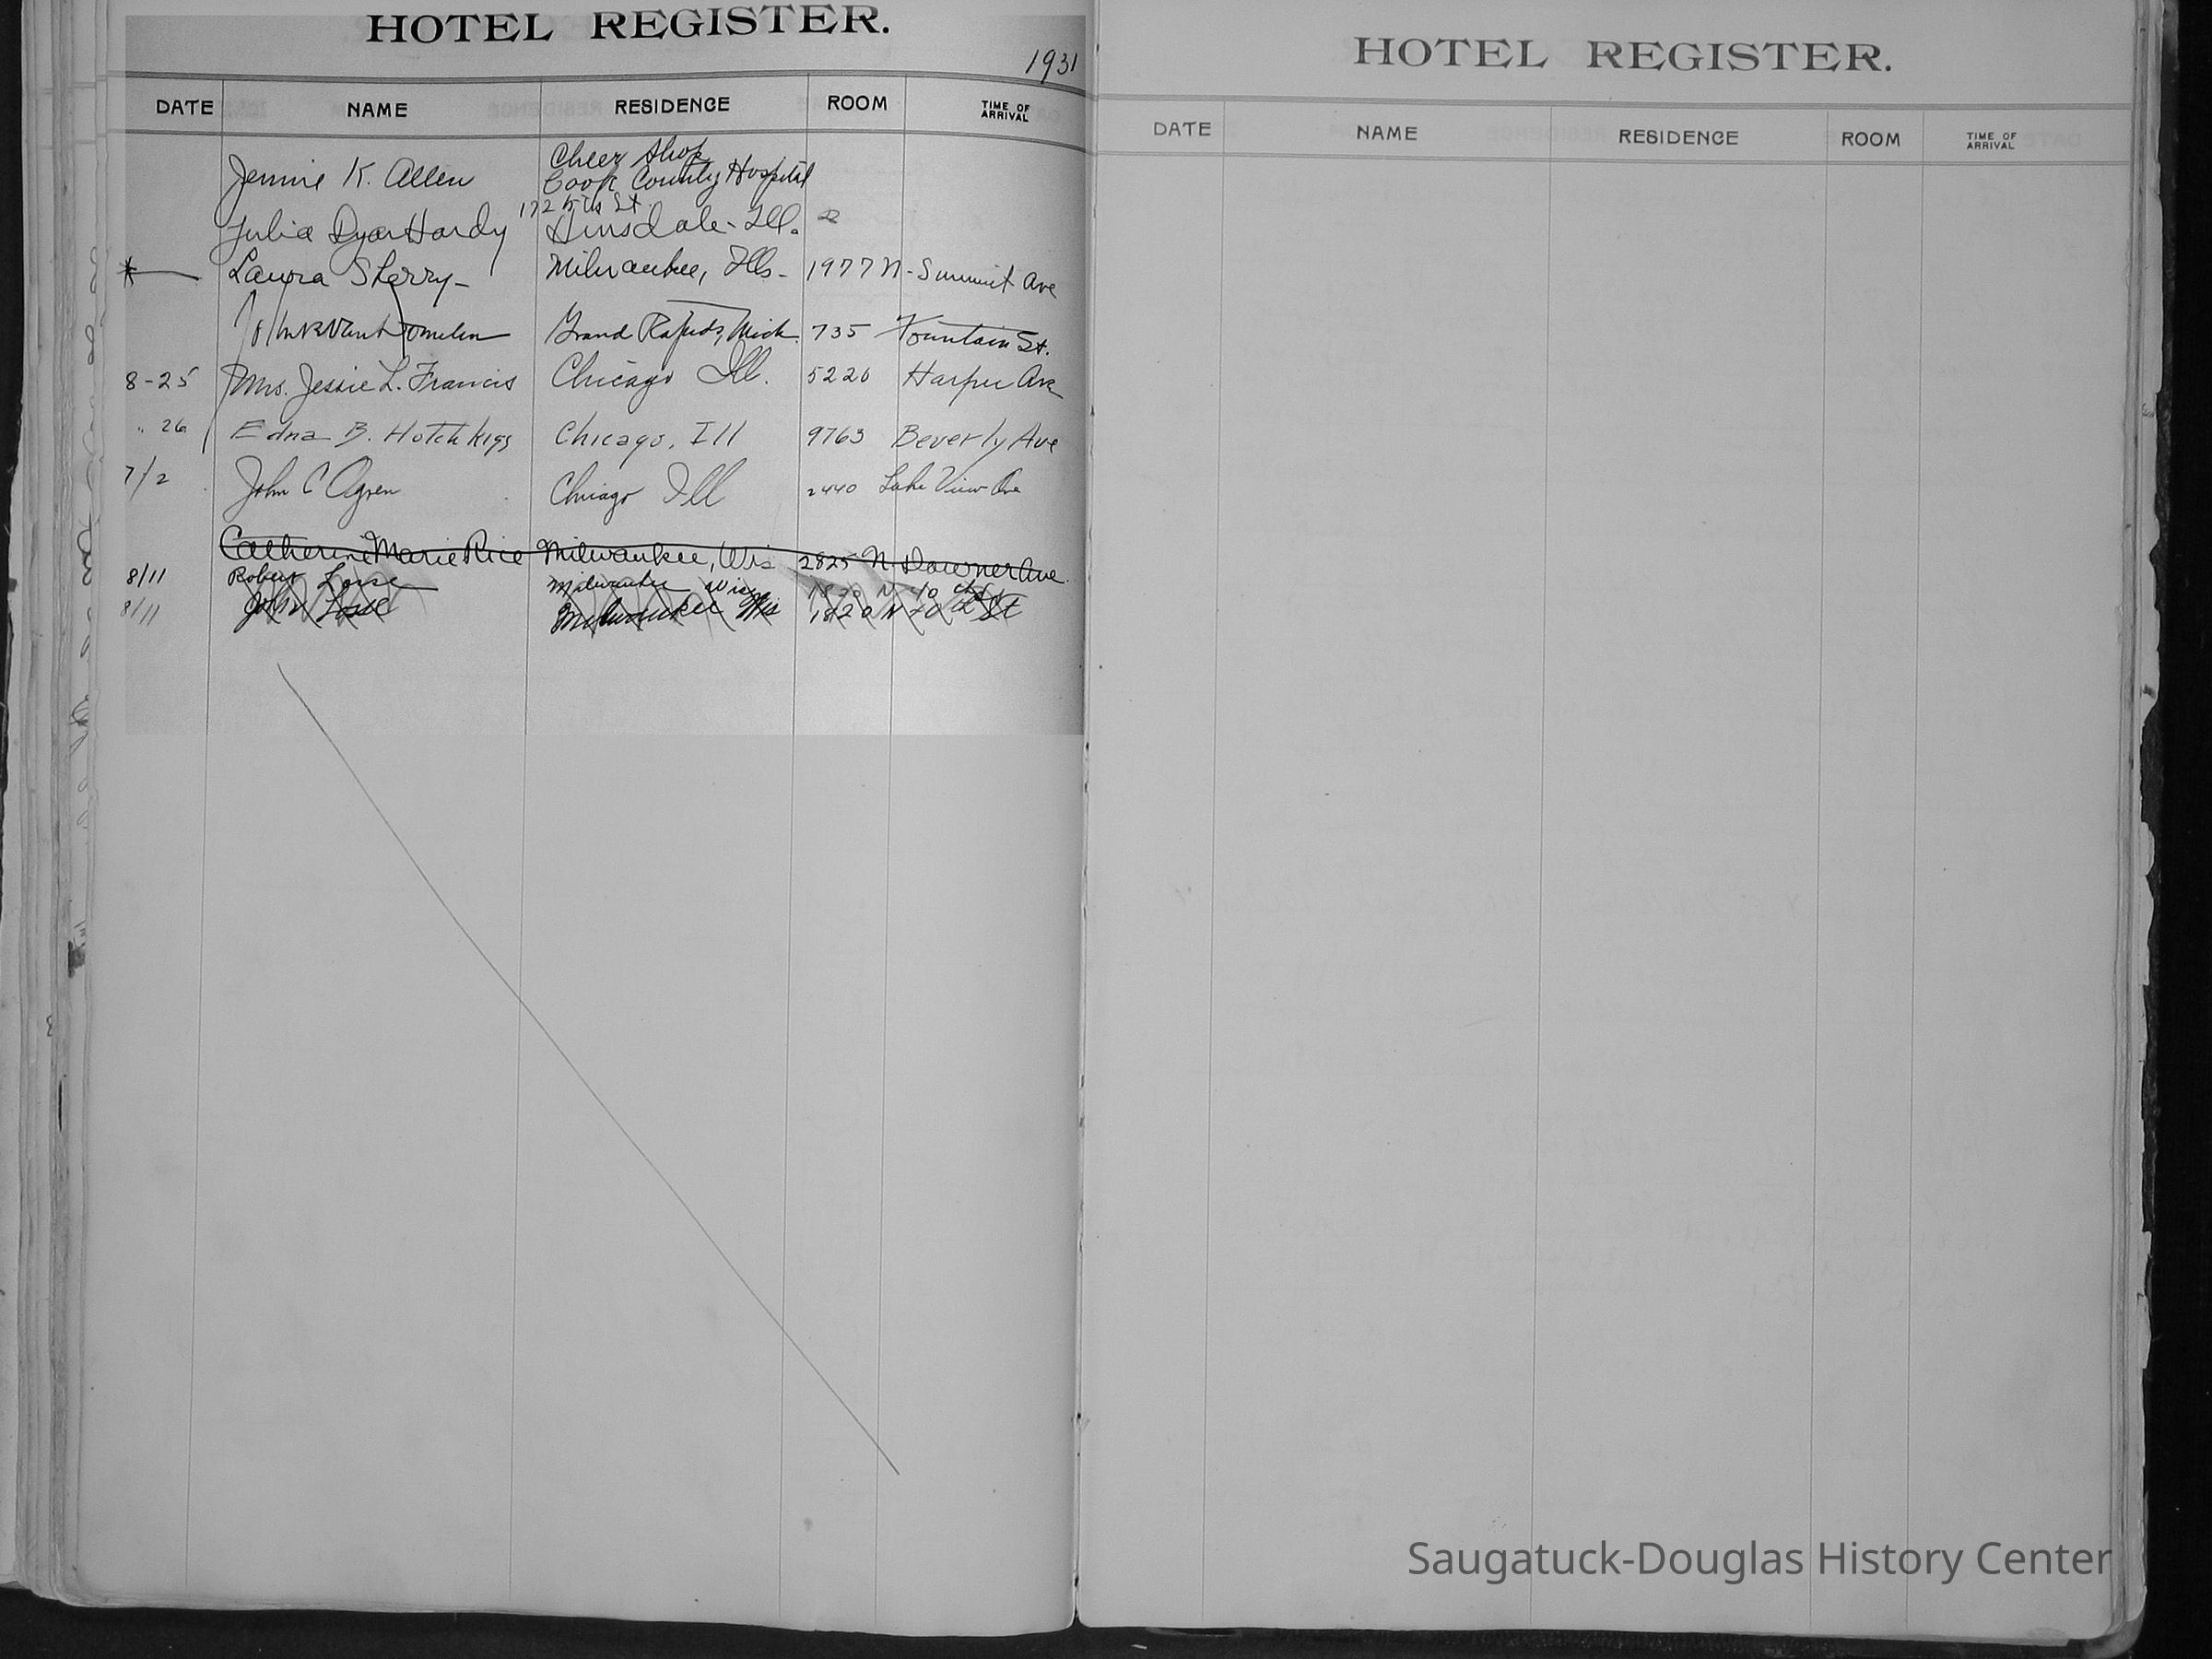 HOTEL REGISTER.
1931
DATE NAME RESIDENCE ROOM TIME OF ARRIVAL
Cheer Shop
Jennie K. Allen Cook County Hospital
172 5th St.
Julia Dyar Hardy Hinsdale - Ill.
Laura Sherry - Milwaukee, Ills - 1977 N - Summit Ave
Grand Rapids, Mich. 735 Fountain St.
8-25 Mrs. Jessie L. Francis Chicago Ill. 5220 Harper Ave
" 26 Edna B. Hotchkiss Chicago, Ill 9763 Beverly Ave
7/2 John C Ogren Chicago Ill 2440 Lake View Ave
Catherine Marie Rice Milwaukee, Wis 2825 N. Downer Ave.
8/11 Robert Milwaukee Wis
8/11 John Milwaukee Wis 1820 N 40 St
HOTEL REGISTER.
DATE NAME RESIDENCE ROOM TIME OF ARRIVAL
Saugatuck-Douglas History Center